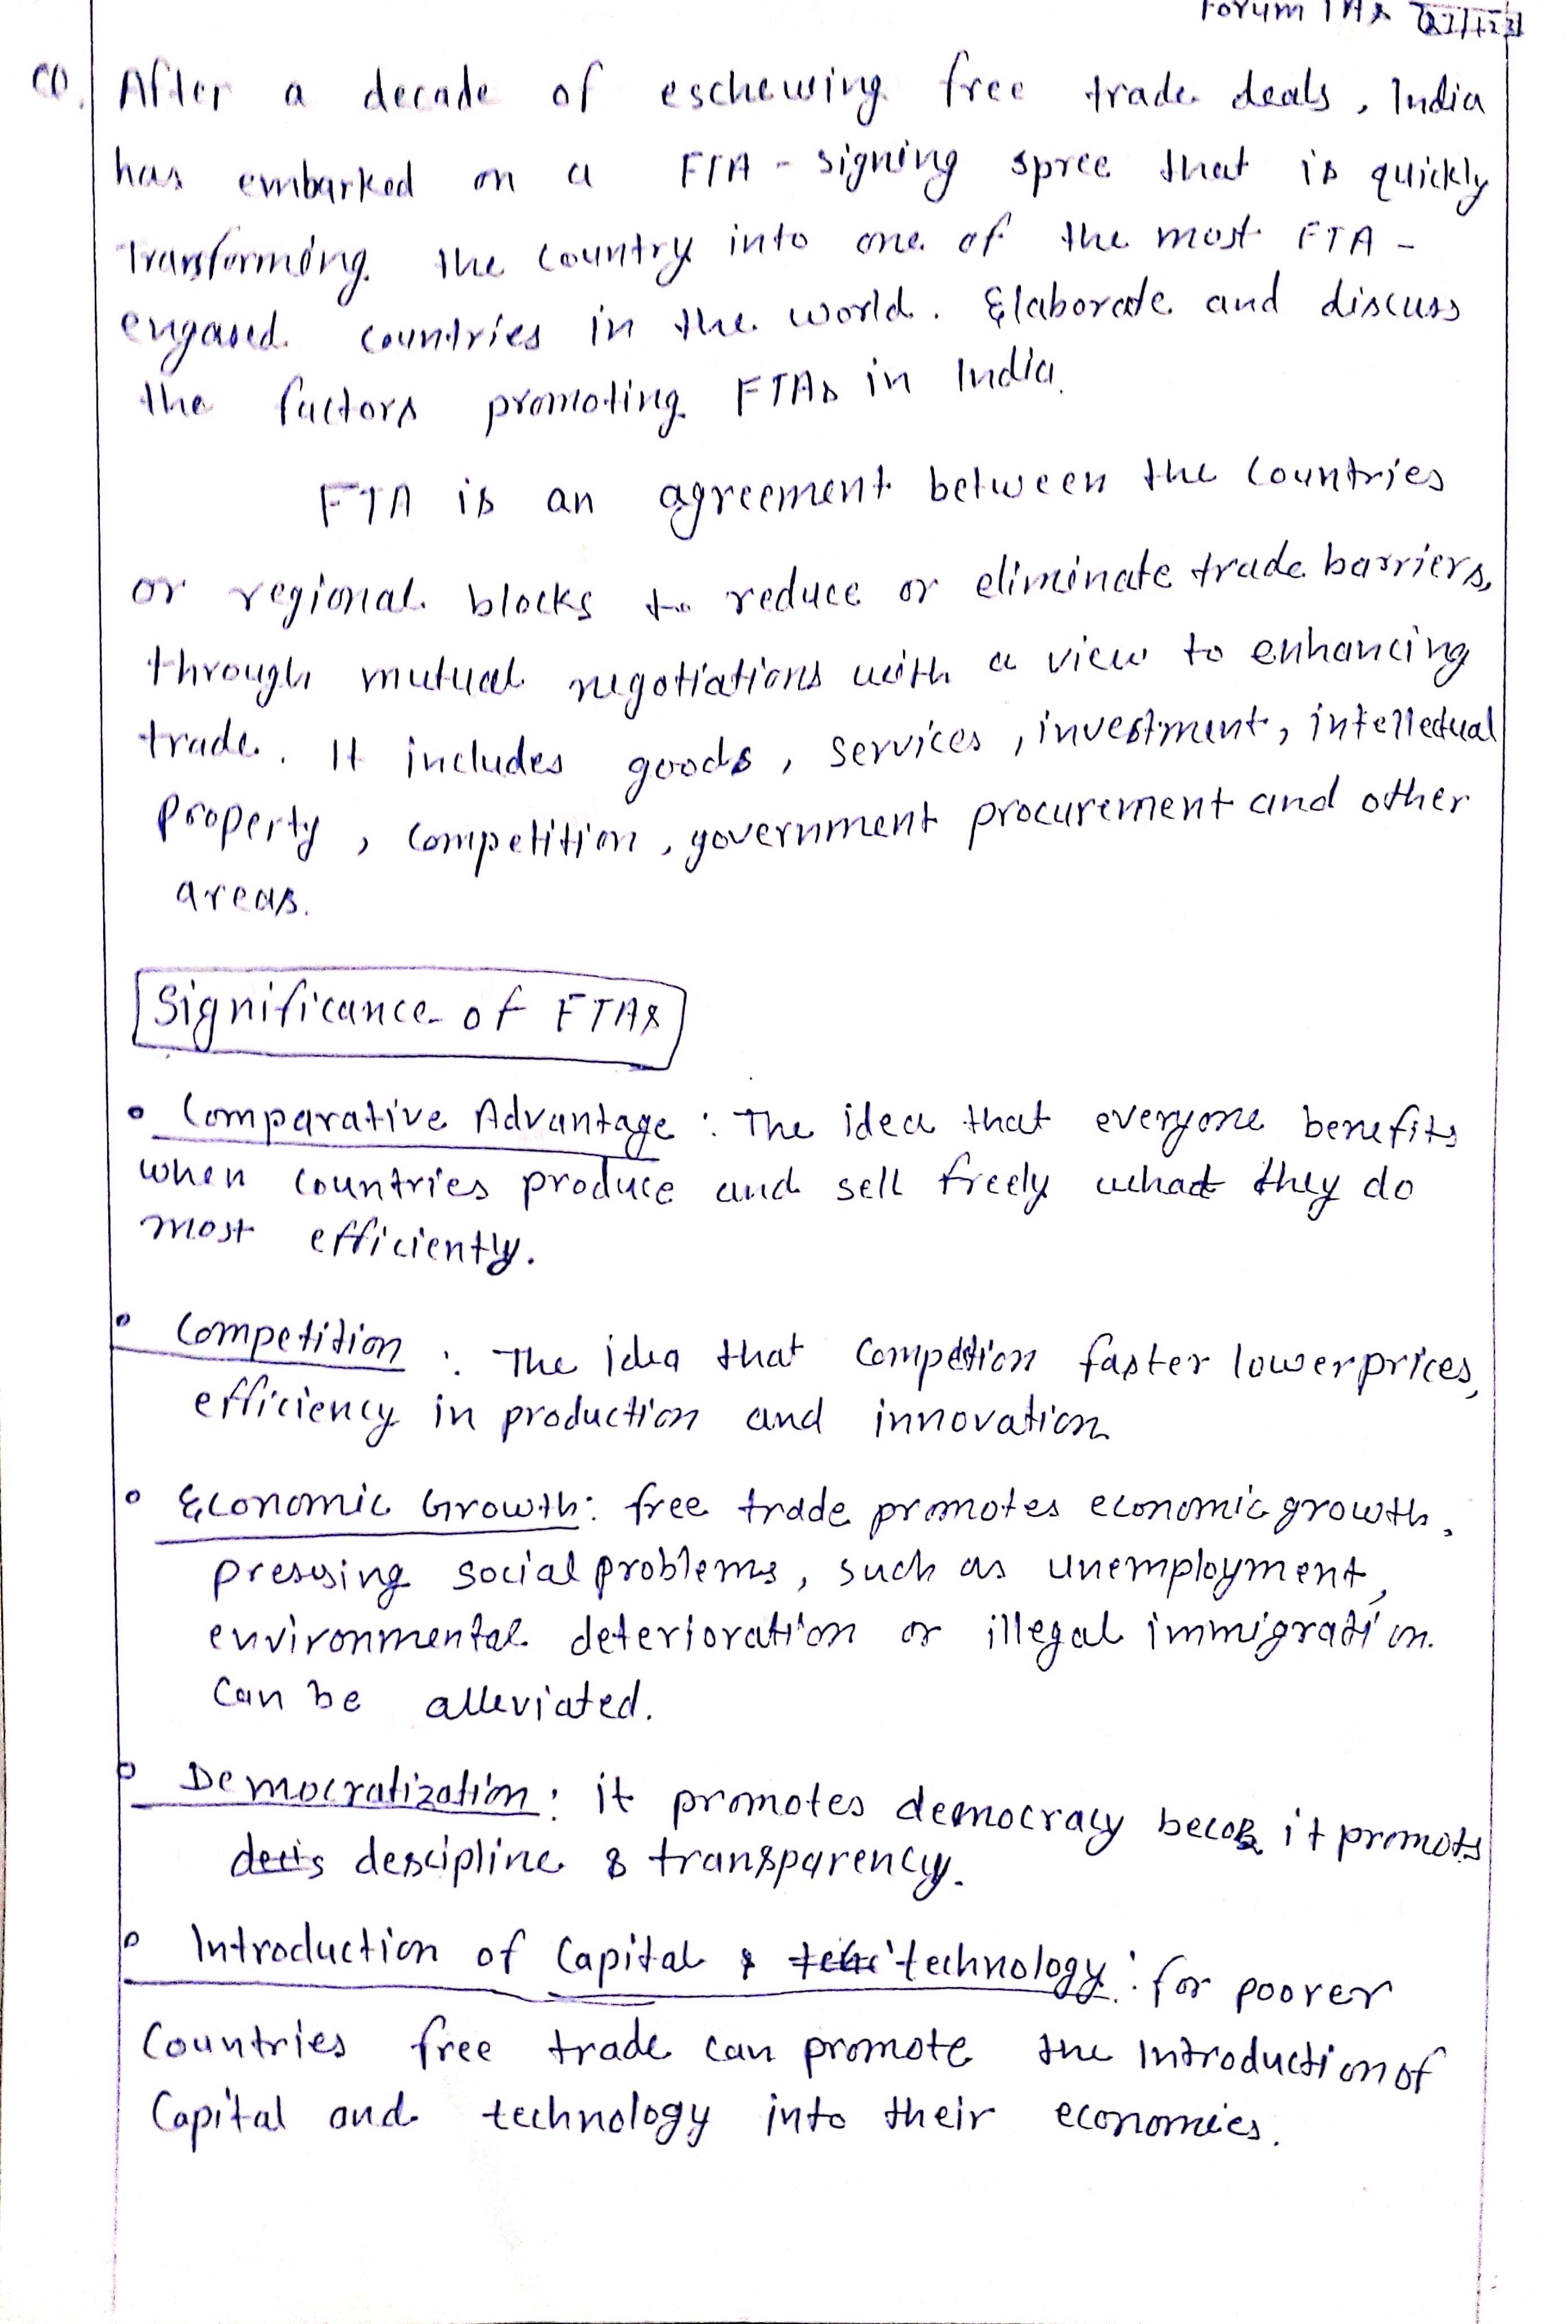 Forum IAS
Q. After a decade of eschewing free trade deals, India
has embarked on a FTA - signing spree that is quickly
Transforming the country into one of the most FTA -
engased countries in the world. Elaborate and discuss
the factors promoting FTAs in India.
FTA is an agreement between the countries
or regional blocks to reduce or eliminate trade barriers,
through mutual negotiations with a view to enhancing
trade. It includes goods, services, investment, intellectual
property, competition, government procurement and other
areas.
Significance of FTAs
• Comparative Advantage : The idea that everyone benefits
when countries produce and sell freely what they do
most efficiently.
• Competition : The idea that Compettion faster lower prices,
efficiency in production and innovation
• Economic Growth: free trade promotes economic growth.
pressing social problems, such as unemployment,
environmental deterioration or illegal immigration.
Can be alleviated.
• Democratization : it promotes democracy becoz it promots
descipline & transparency.
• Introduction of Capital & technology : for poorer
Countries free trade can promote the Introduction of
Capital and technology into their economies.